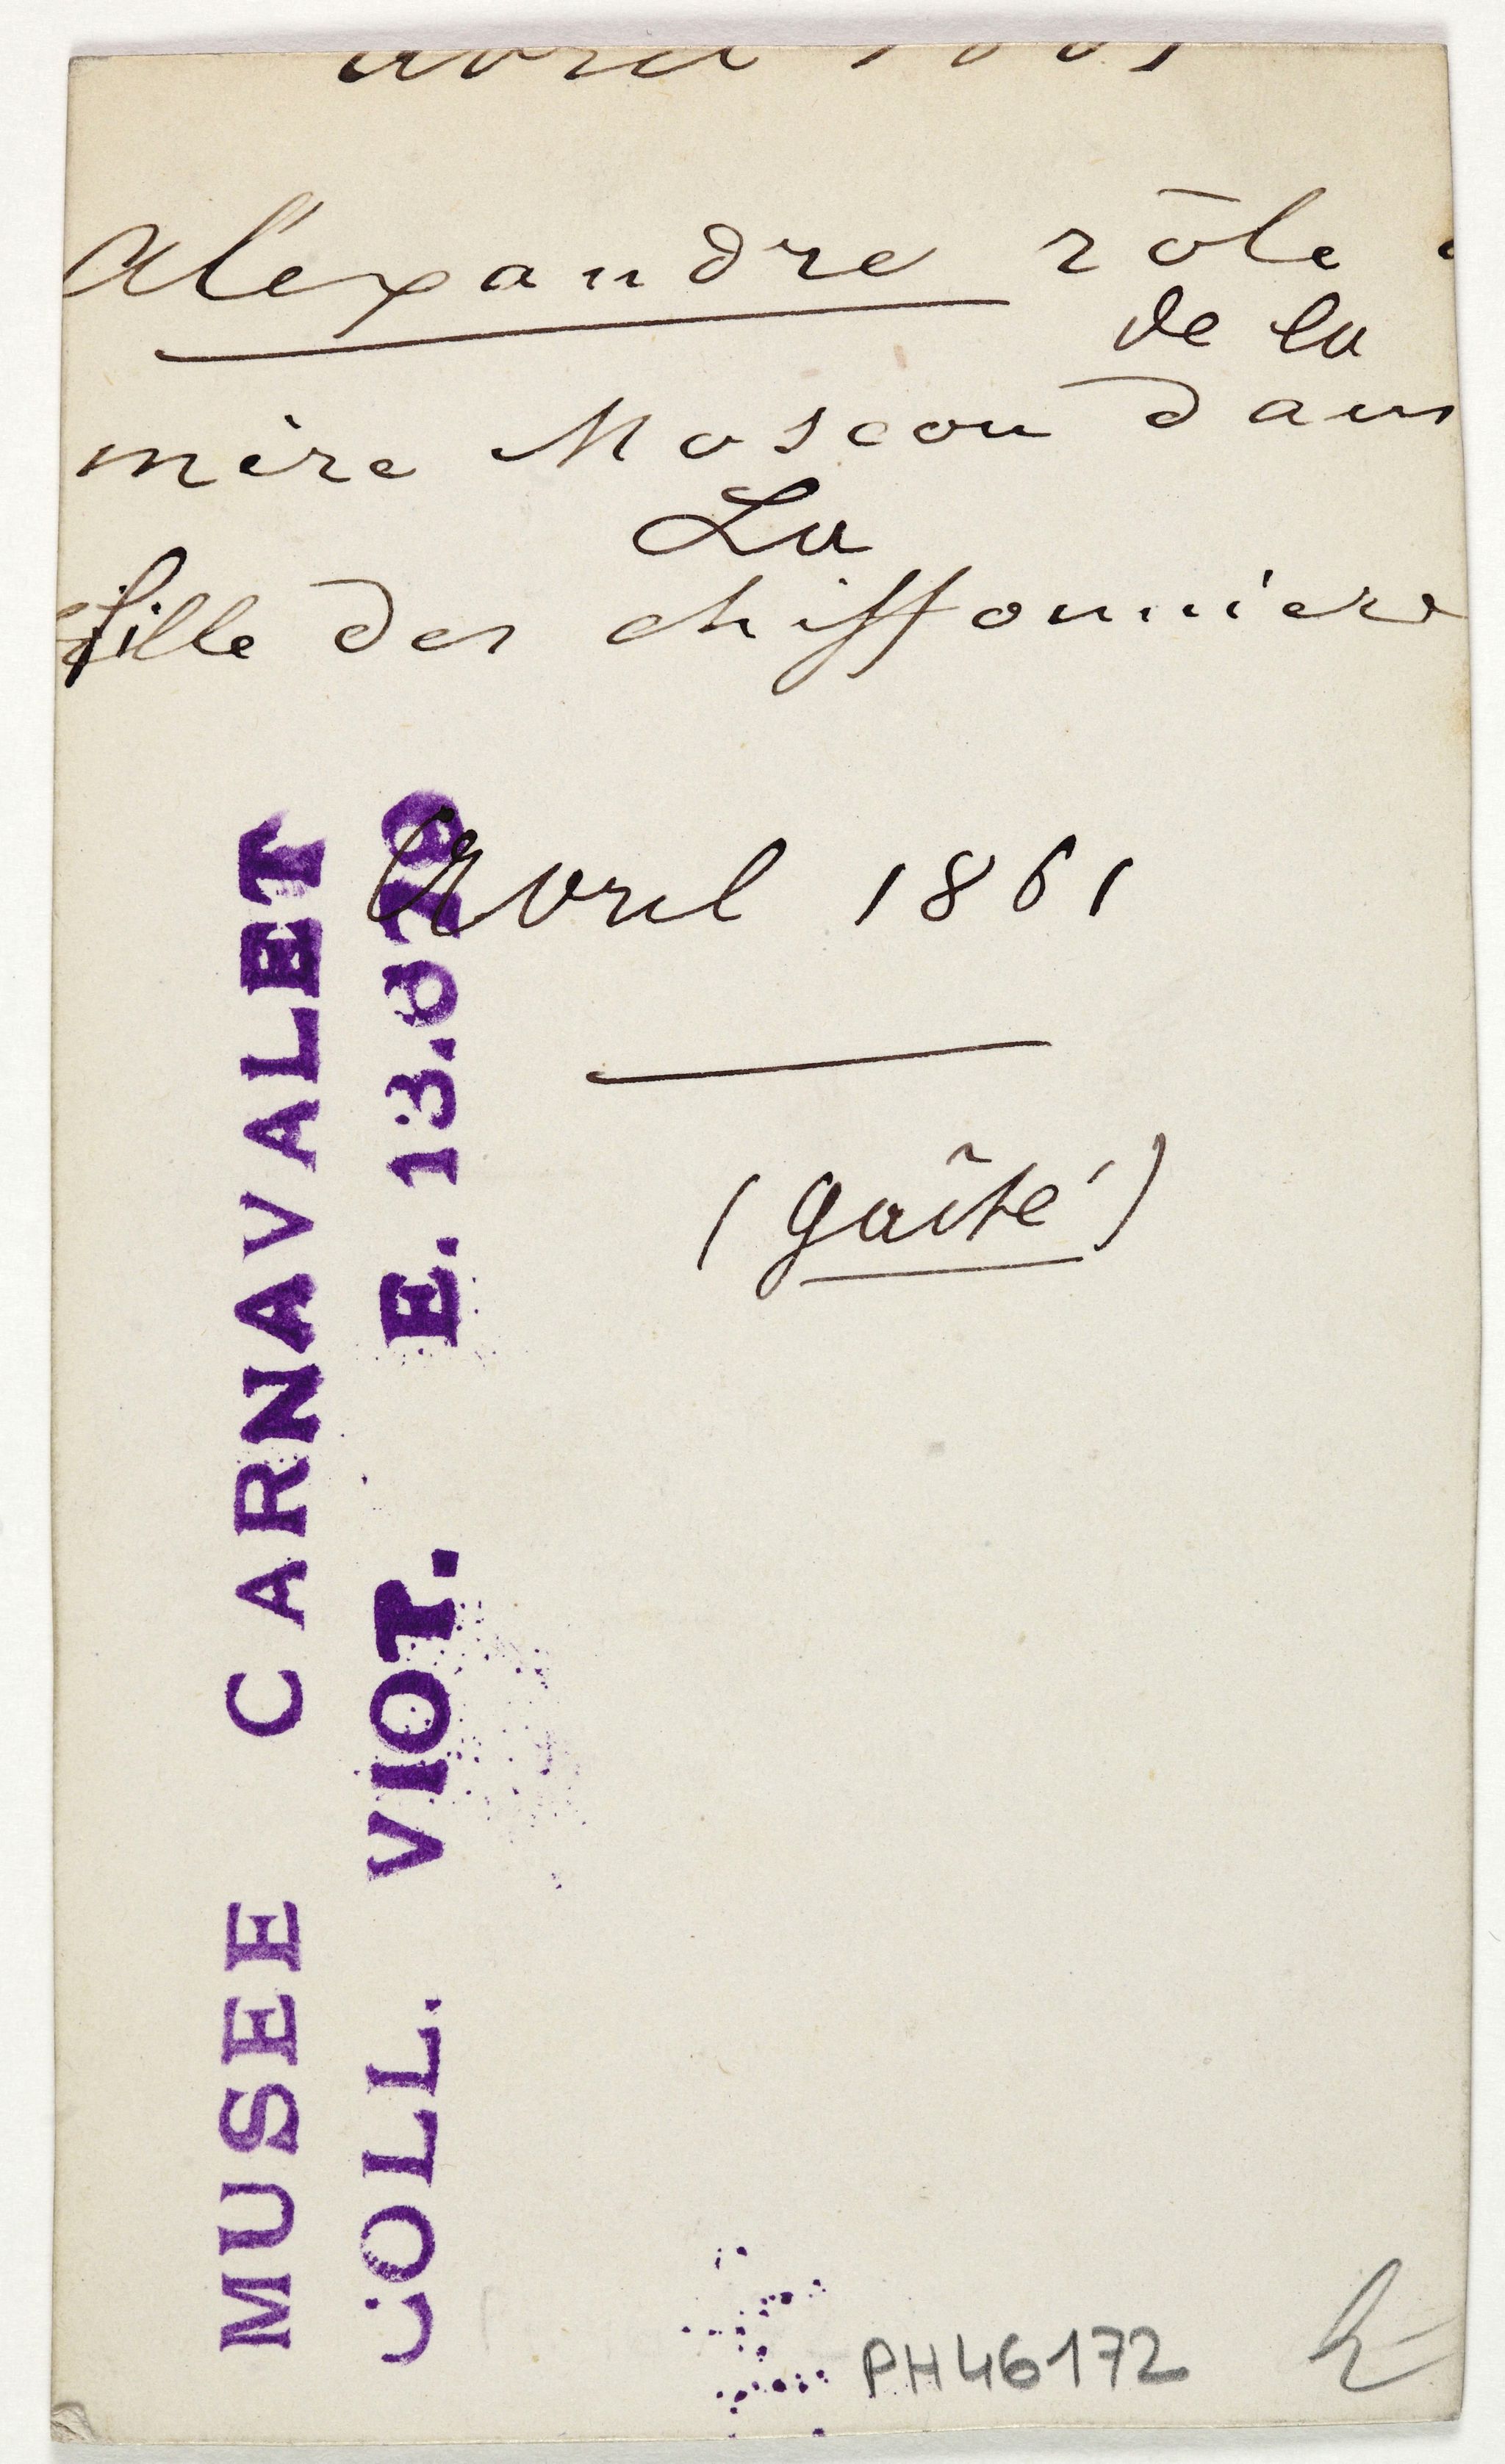 avril 1861
Alexandre rôle
de la
mère Moscou dans
La
fille des chiffonniers
Avril 1861
(Gaîté)
MUSEE CARNAVALET
COLL. VIOT. E. 13.
PH46172